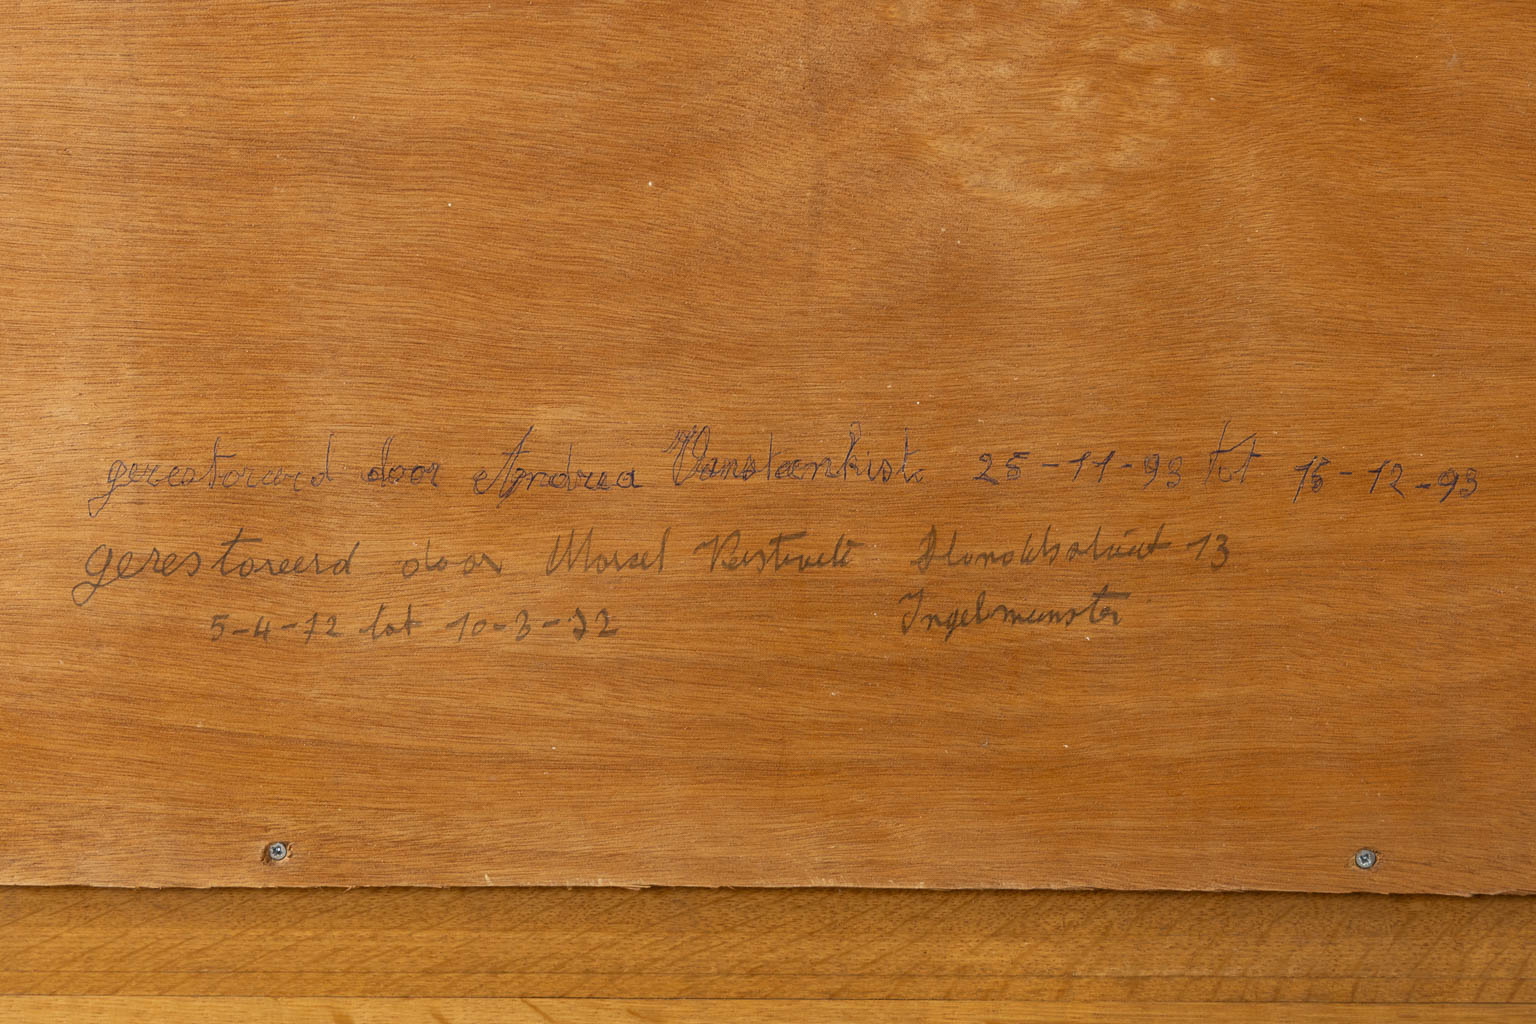 gerestoreerd door Andrea Vansteenkiste 25-11-93 tot 16-12-93
gerestoreerd door Marcel 13
5-4-72 tot 10-3-72 Ingelmunster